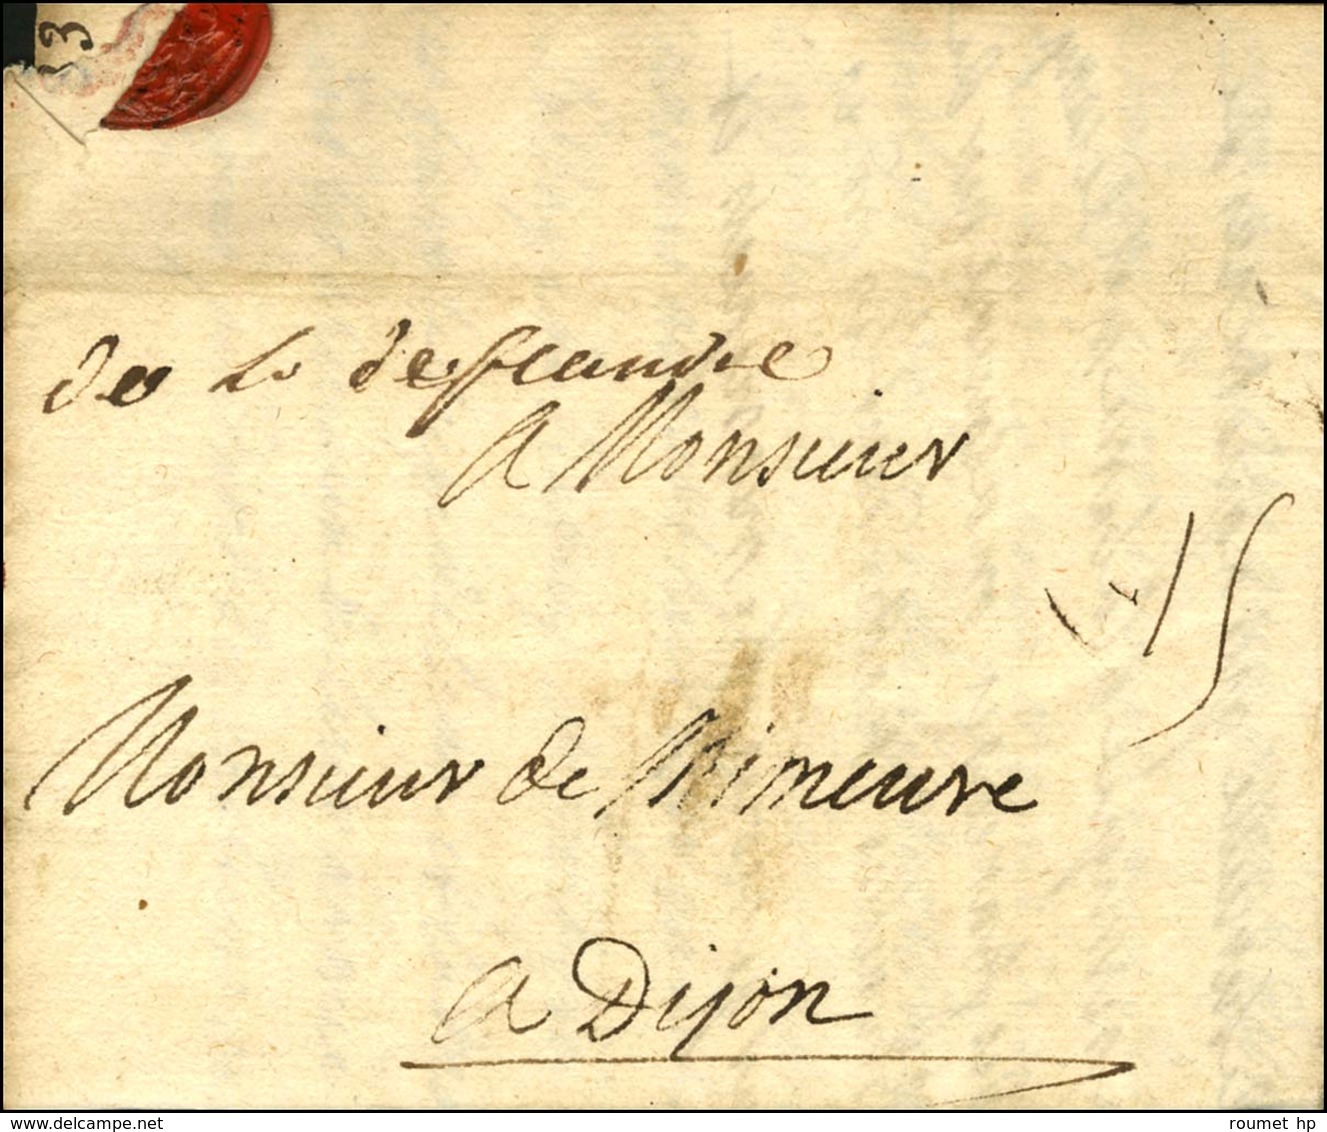 33
de L deflandre
A Monsieur
15
Monsieur de Mimeure
a Dijon
delcampe.net
roumet hp